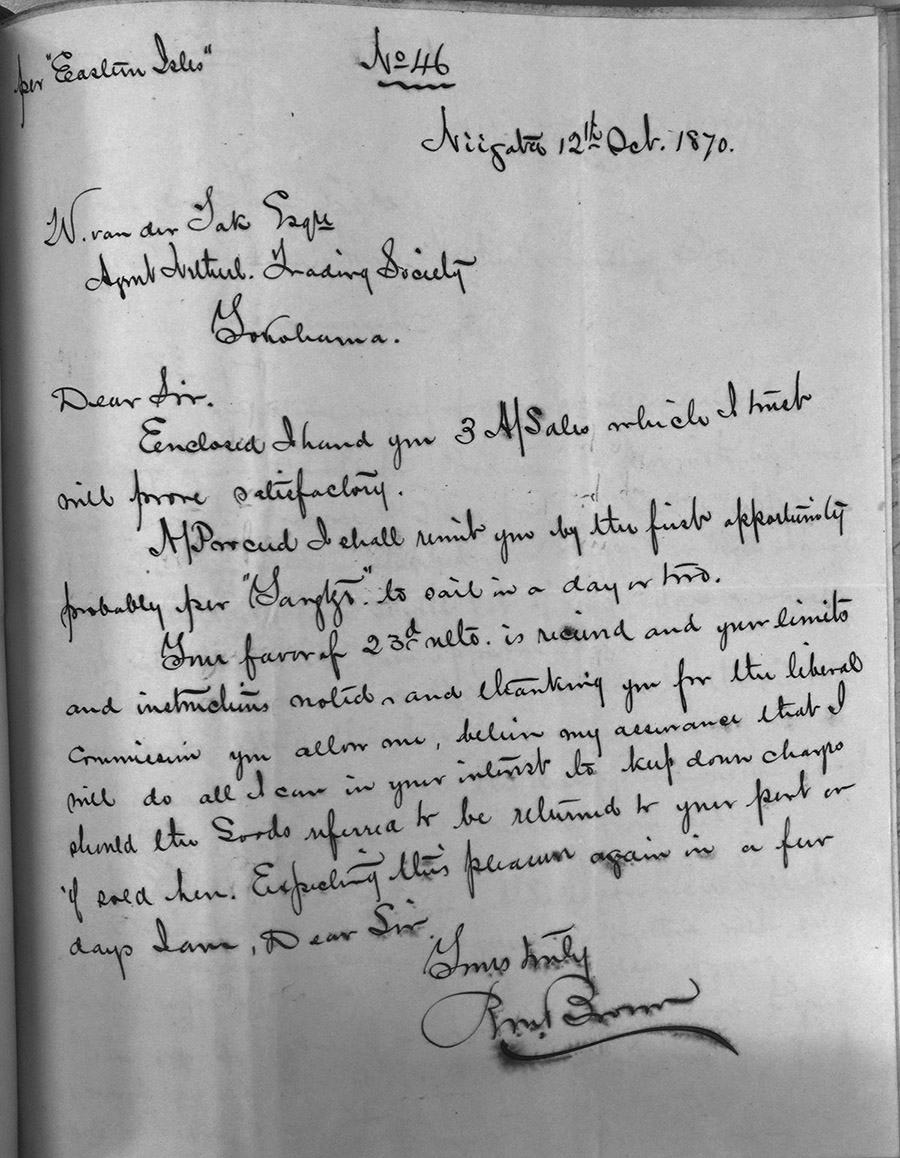 per "Eastern Isles"
No 46
Niigata 12th Oct. 1870.
W. van der Tak Esqre
Agent Netherl. Trading Society
Yokohama.
Dear Sir.
Enclosed I hand you 3 A/Sales which I trust
will prove satisfactory.
N/Proceed I shall remit you by the first opportunity
probably per "Yangtze" to sail in a day or two.
Your favor of 23d ulto. is received and your limits
and instructions noted, and thanking you for the liberal
commission you allow me, believe my assurance that I
will do all I can in your interest to keep down charges
should the Goods referred to be returned to your port or
if sold here. Expecting this pleasure again in a few
days I am, Dear Sir.
Yours truly
Brown